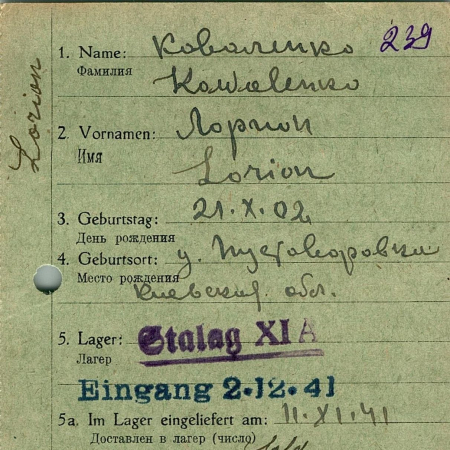 239
1. Name: Коваленко
Фамилия Kowalenko
Lorion
2. Vornamen: Лорион
Имя Lorion
3. Geburtstag: 21.X.02
День рождения
4. Geburtsort: у. Пустоваровка
Место рождения Киевский обл.
5. Lager: Stalag XI A
Лагер
Eingang 2.12.41
5a. Im Lager eingeliefert am: 11.XI.41
Доставлен в лагер (число)